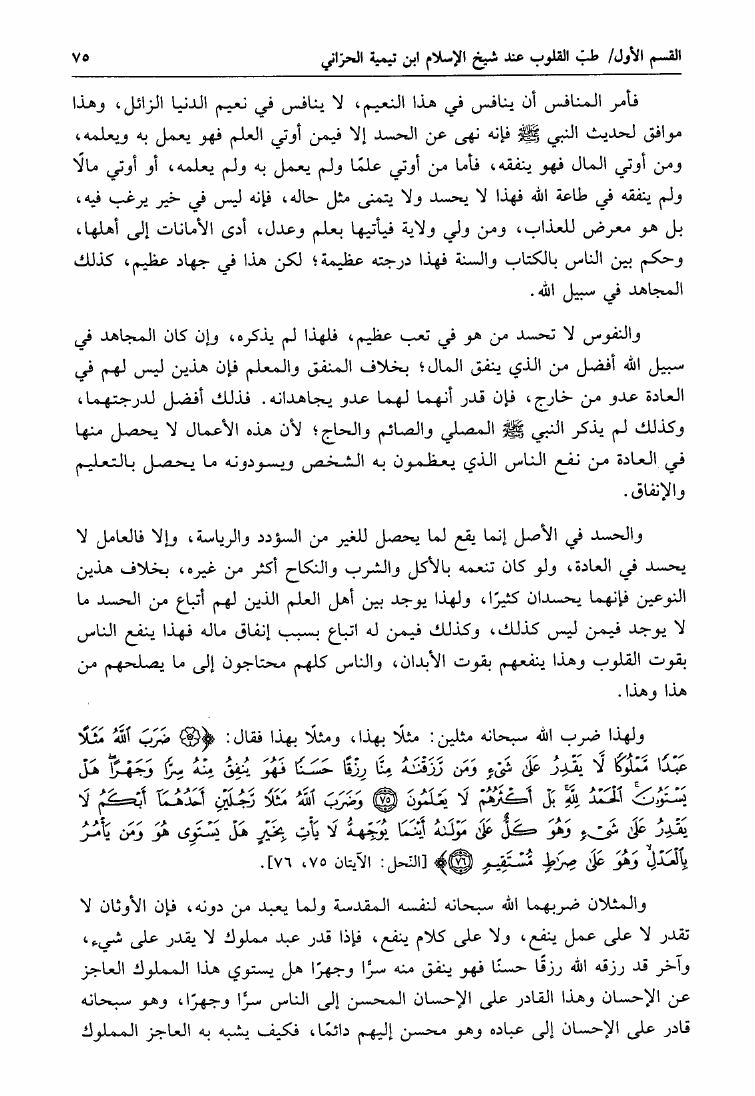 القسم الأول/ طبّ القلوب عند شيخ الإسلام ابن تيمية الحرّاني ٧٥
فأمر المنافس أن ينافس في هذا النعيم، لا ينافس في نعيم الدنيا الزائل، وهذا
موافق لحديث النبي ﷺ فإنه نهى عن الحسد إلا فيمن أوتي العلم فهو يعمل به ويعلمه،
ومن أوتي المال فهو ينفقه، فأما من أوتي علمًا ولم يعمل به ولم يعلمه، أو أوتي مالًا
ولم ينفقه في طاعة الله فهذا لا يحسد ولا يتمنى مثل حاله، فإنه ليس في خير يرغب فيه،
بل هو معرض للعذاب، ومن ولي ولاية فيأتيها بعلم وعدل، أدى الأمانات إلى أهلها،
وحكم بين الناس بالكتاب والسنة فهذا درجته عظيمة؛ لكن هذا في جهاد عظيم، كذلك
المجاهد في سبيل الله.
والنفوس لا تحسد من هو في تعب عظيم، فلهذا لم يذكره، وإن كان المجاهد في
سبيل الله أفضل من الذي ينفق المال؛ بخلاف المنفق والمعلم فإن هذين ليس لهم في
العادة عدو من خارج، فإن قدر أنهما لهما عدو يجاهدانه. فذلك أفضل لدرجتهما،
وكذلك لم يذكر النبي ﷺ المصلي والصائم والحاج؛ لأن هذه الأعمال لا يحصل منها
في العادة من نفع الناس الذي يعظمون به الشخص ويسودونه ما يحصل بالتعليم
والإنفاق.
والحسد في الأصل إنما يقع لما يحصل للغير من السؤدد والرياسة، وإلا فالعامل لا
يحسد في العادة، ولو كان تنعمه بالأكل والشرب والنكاح أكثر من غيره، بخلاف هذين
النوعين فإنهما يحسدان كثيرًا، ولهذا يوجد بين أهل العلم الذين لهم أتباع من الحسد ما
لا يوجد فيمن ليس كذلك، وكذلك فيمن له اتباع بسبب إنفاق ماله فهذا ينفع الناس
بقوت القلوب وهذا ينفعهم بقوت الأبدان، والناس كلهم محتاجون إلى ما يصلحهم من
هذا وهذا.
ولهذا ضرب الله سبحانه مثلين: مثلًا بهذا، ومثلًا بهذا فقال: ﴿۞ ضَرَبَ ٱللَّهُ مَثَلًا
عَبْدًا مَّمْلُوكًا لَّا يَقْدِرُ عَلَىٰ شَىْءٍ وَمَن رَّزَقْنَـٰهُ مِنَّا رِزْقًا حَسَنًا فَهُوَ يُنفِقُ مِنْهُ سِرًّا وَجَهْرًا ۖ هَلْ
يَسْتَوُۥنَ ۚ ٱلْحَمْدُ لِلَّهِ ۚ بَلْ أَكْثَرُهُمْ لَا يَعْلَمُونَ ﴿٧٥﴾ وَضَرَبَ ٱللَّهُ مَثَلًا رَّجُلَيْنِ أَحَدُهُمَآ أَبْكَمُ لَا
يَقْدِرُ عَلَىٰ شَىْءٍ وَهُوَ كَلٌّ عَلَىٰ مَوْلَىٰهُ أَيْنَمَا يُوَجِّههُّ لَا يَأْتِ بِخَيْرٍ ۖ هَلْ يَسْتَوِى هُوَ وَمَن يَأْمُرُ
بِٱلْعَدْلِ ۙ وَهُوَ عَلَىٰ صِرَٰطٍ مُّسْتَقِيمٍ ﴿٧٦﴾﴾ [النّحل: الآيتان ٧٥، ٧٦].
والمثلان ضربهما الله سبحانه لنفسه المقدسة ولما يعبد من دونه، فإن الأوثان لا
تقدر لا على عمل ينفع، ولا على كلام ينفع، فإذا قدر عبد مملوك لا يقدر على شيء،
وآخر قد رزقه الله رزقًا حسنًا فهو ينفق منه سرًّا وجهرًا هل يستوي هذا المملوك العاجز
عن الإحسان وهذا القادر على الإحسان المحسن إلى الناس سرًّا وجهرًا، وهو سبحانه
قادر على الإحسان إلى عباده وهو محسن إليهم دائمًا، فكيف يشبه به العاجز المملوك